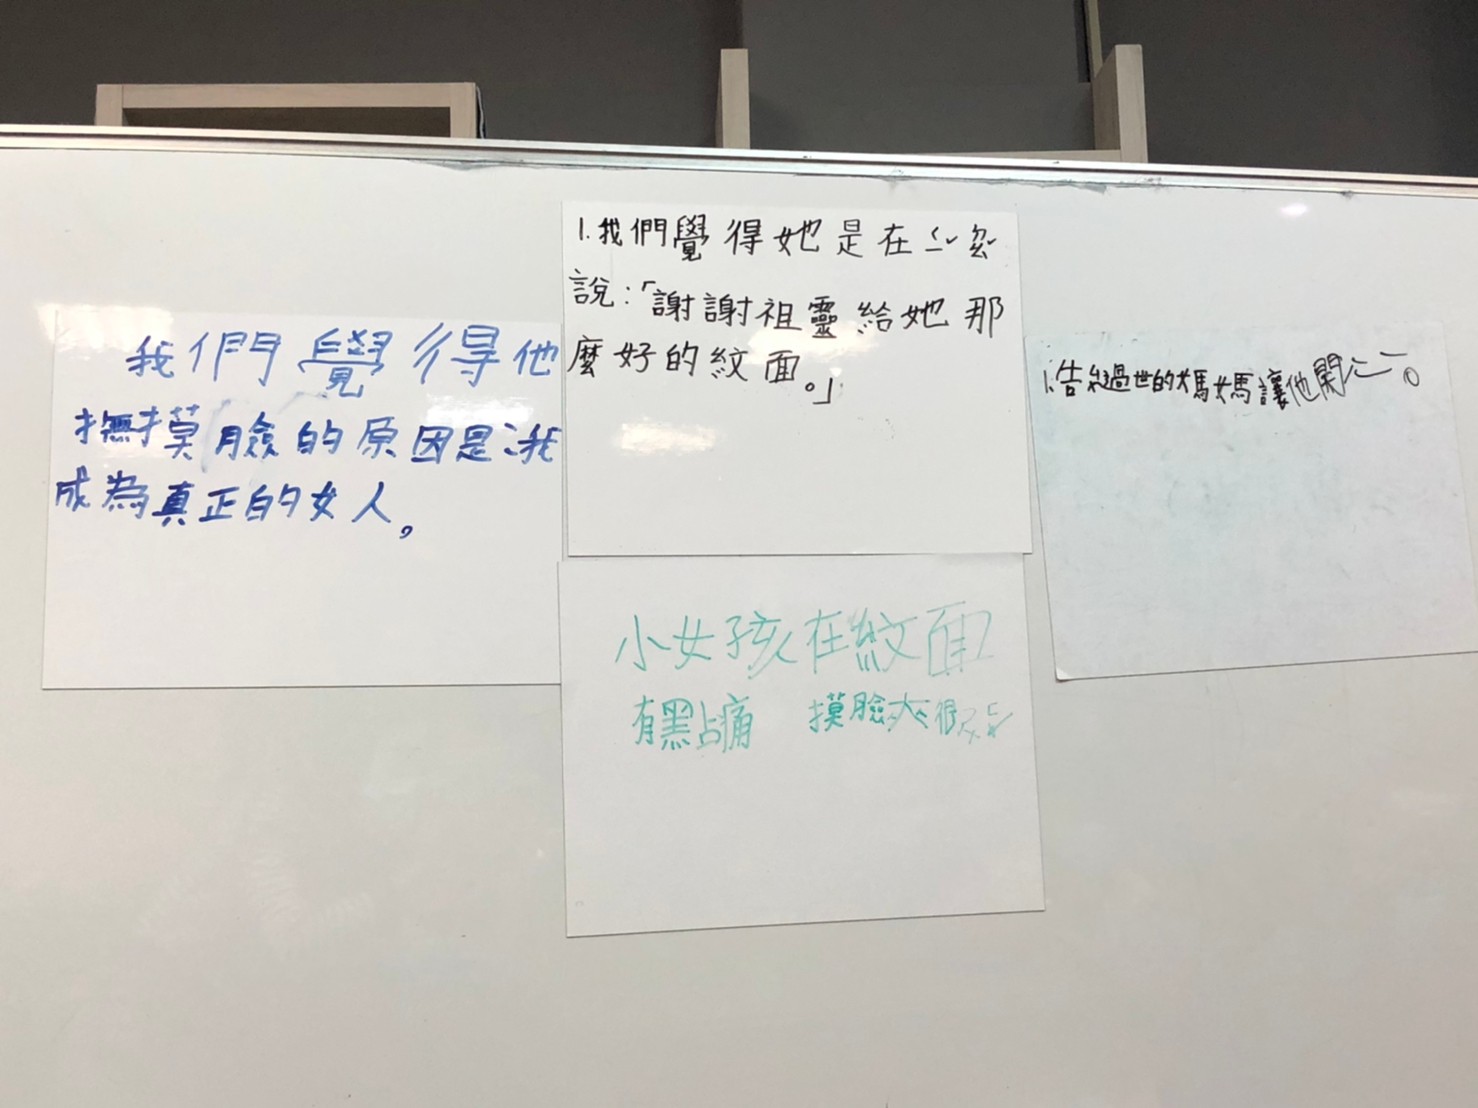 我們覺得他
撫摸臉的原因是:我
成為真正的女人。
1.我們覺得她是在心裡
說:「謝謝祖靈給她那
麼好的紋面。」
小女孩在紋面
有黑占痛 摸臉
1.告過世的媽媽讓他開心。